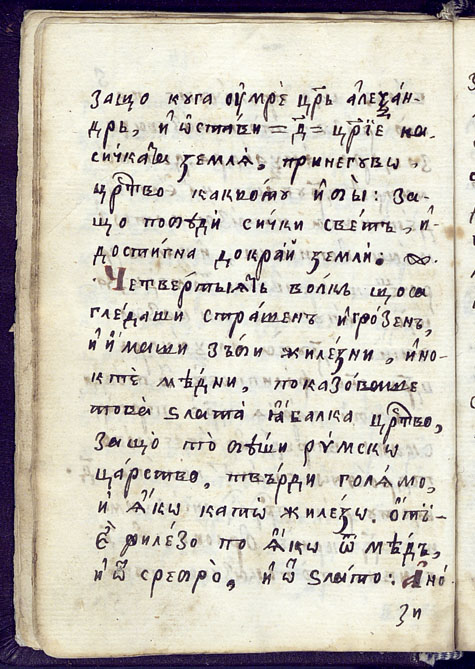 защо кѹга ѹ҆мрѐ цр҃ь а҆леѯа́н-
дрь, и҆ ѡ҆ста́ви = д҃ = цр҃їе на
си́чката земля̀, при негувѡ
цр҃тво какво́то и҆ бы̀: за-
що побѣдѝ си́чки све́тъ, и҆
дости́гна до край землѝ:
Четве́ртыѧтъ во́лкъ що са
гле́даши стра́шенъ и҆ гро́зенъ,
и҆ и҆́маши зъ́би жиле́зни, и҆ но-
ктѐ мѣ́дни, показо́ваше
това̀ ѕлата̀ ꙗ҆́балка цр҃тво,
защо̀ то бѣ́ши ри́мскѡ
ца́рство, твъ́рди голя́мо,
и҆ ꙗ҆́кѡ като̀ жиле́зѡ. ѻ҆ти-
є҆̀ филе́зо по ꙗ҆́кѡ ѿ мѣ́дъ,
и҆ ѿ сребрѐ, и҆ ѿ ѕла́то: А҆но́
зи